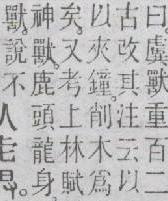 曰虡獸重百二
古改其注云以
以夾鐘削木為
矣。又考上林賦
神獸。鹿頭龍身
獸。說不